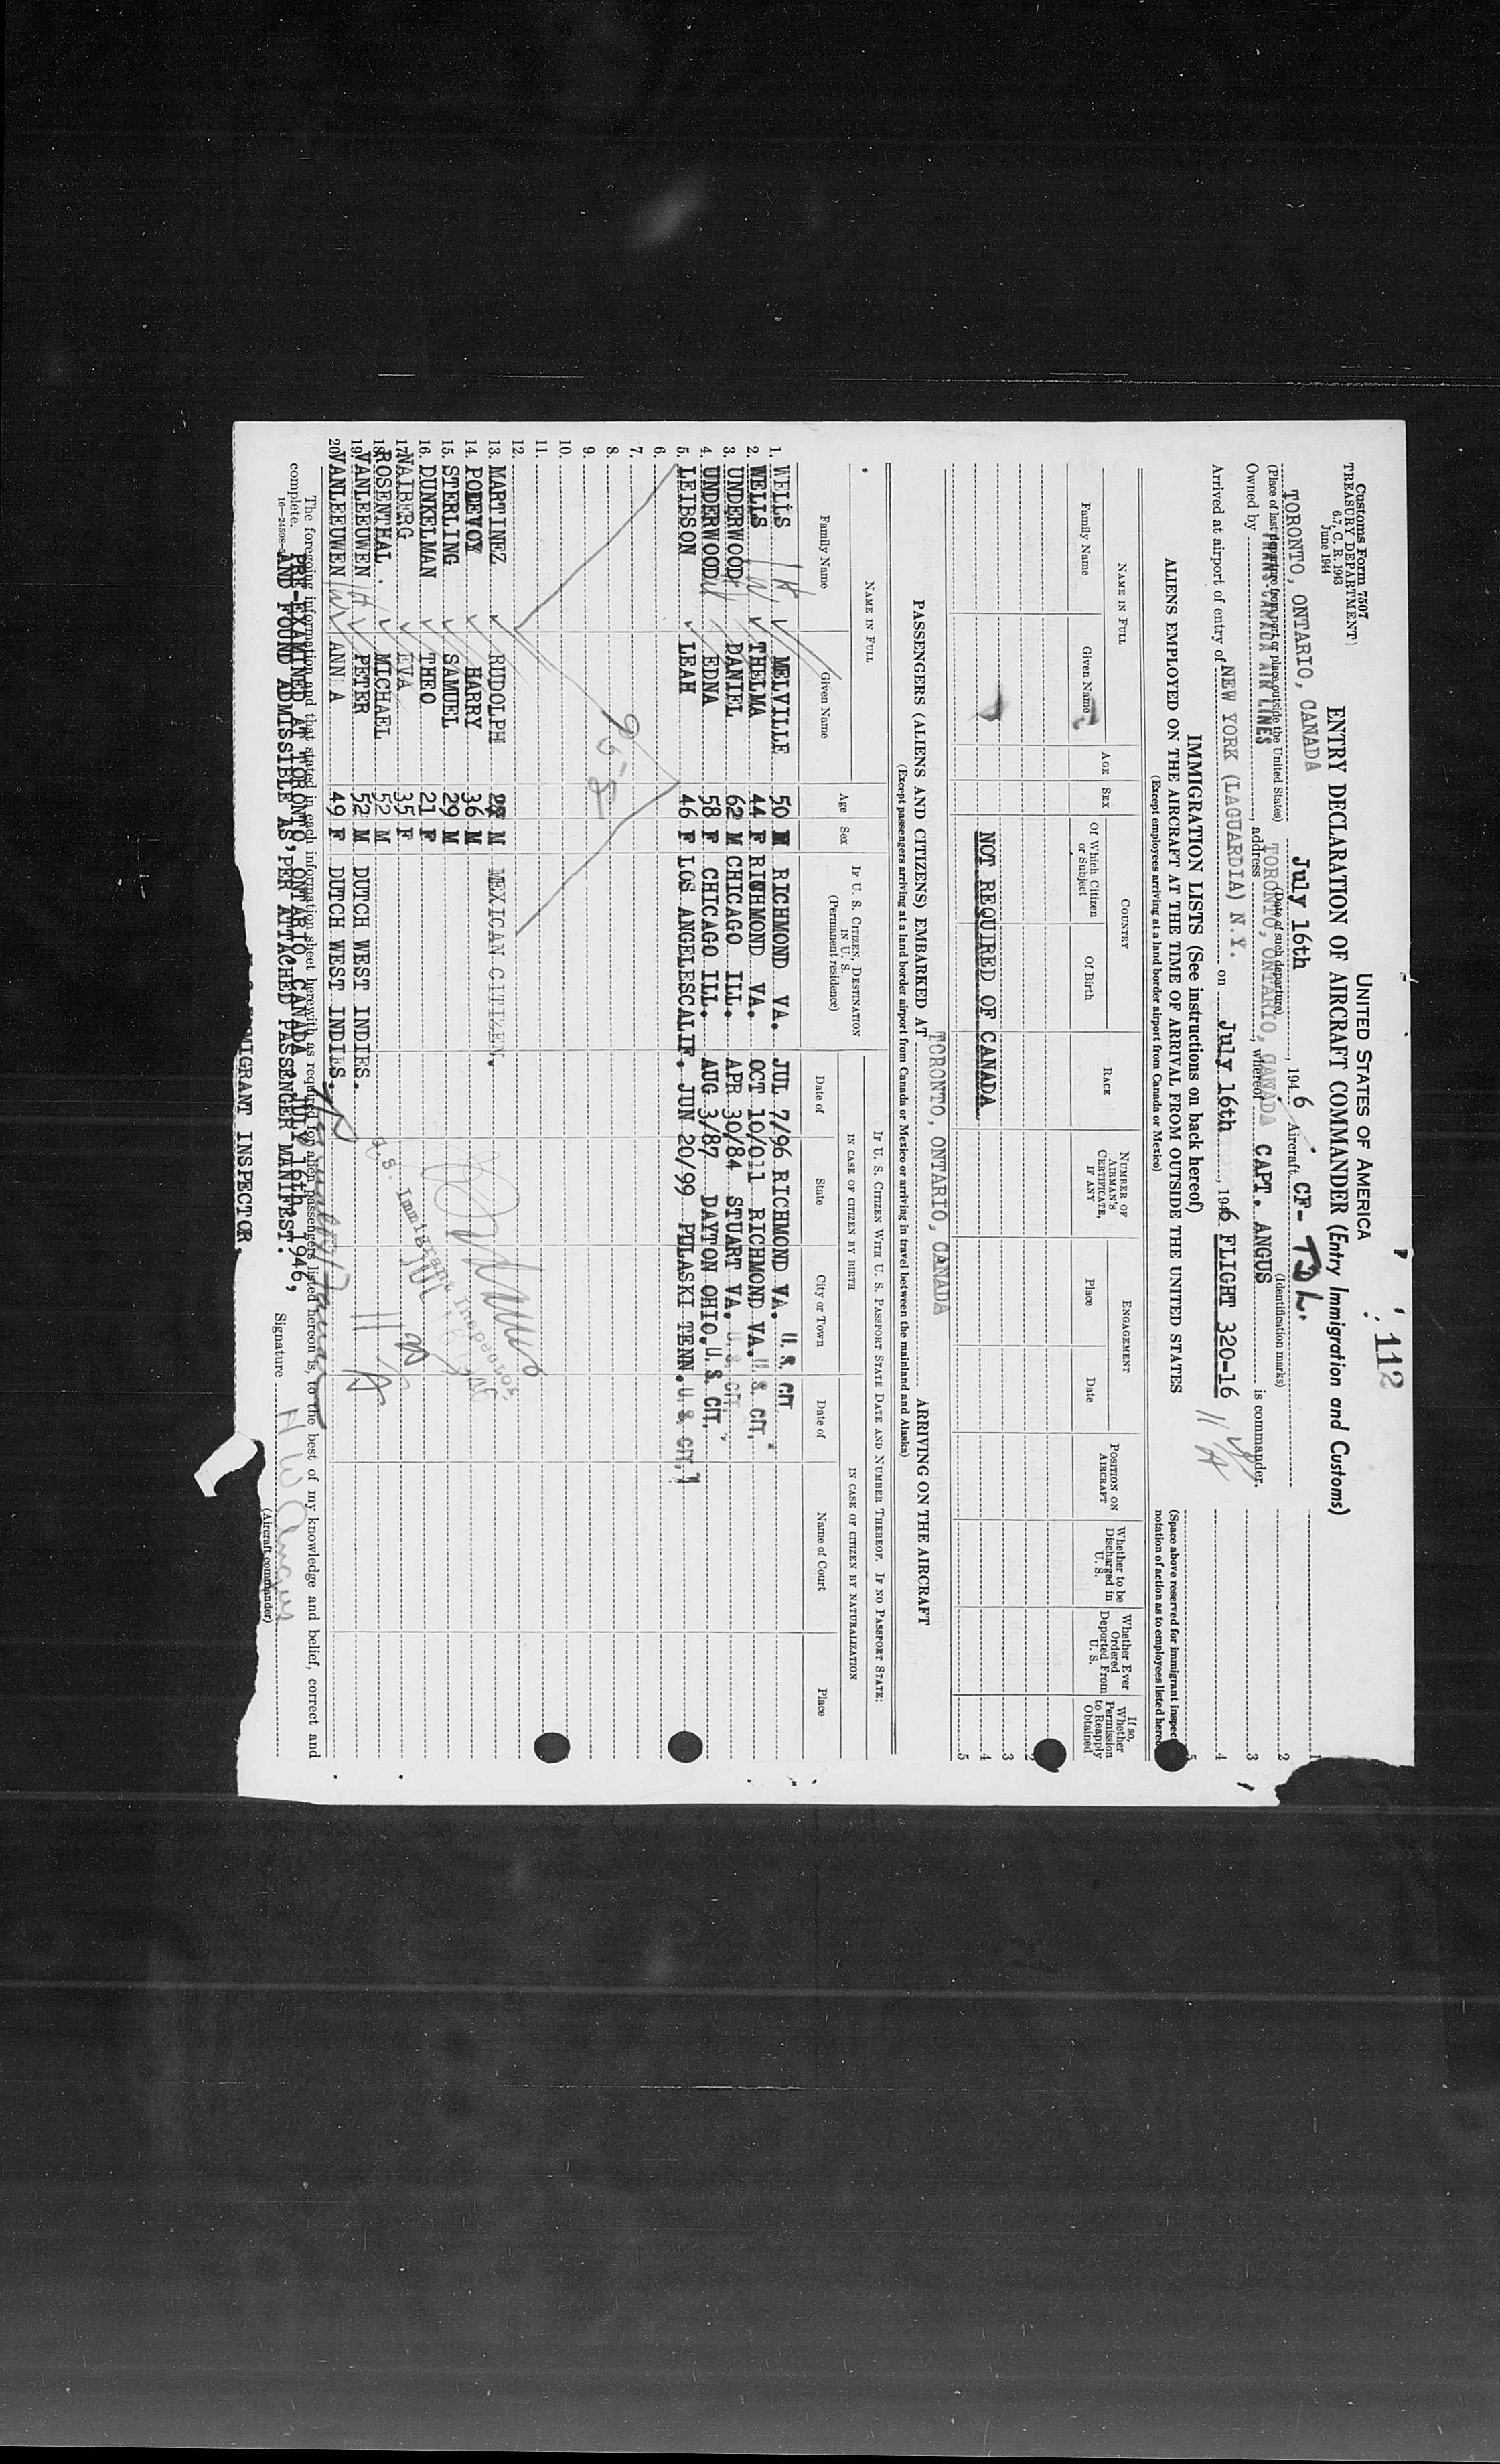 112
Customs Form 7507
TREASURY DEPARTMENT
6.7, C. R. 1943
June 1944
UNITED STATES OF AMERICA
ENTRY DECLARATION OF AIRCRAFT COMMANDER (Entry Immigration and Customs)
TORONTO, ONTARIO, CANADA July 16th, 1946 Aircraft CF- TDL.
(Place of last departure from port or place outside the United States) (Date of such departure) (Identification marks)
Owned by TRANS-CANADA AIR LINES, address TORONTO, ONTARIO, CANADA, whereof CAPT. ANGUS is commander.
Arrived at airport of entry of NEW YORK (LAGUARDIA) N.Y. on July 16th, 1946 FLIGHT 320-16
1
2
3
4
5
IMMIGRATION LISTS (See instructions on back hereof)
ALIENS EMPLOYED ON THE AIRCRAFT AT THE TIME OF ARRIVAL FROM OUTSIDE THE UNITED STATES
(Except employees arriving at a land border airport from Canada or Mexico)
(Space above reserved for immigrant inspec
notation of action as to employees listed hereo
NAME IN FULL
Family Name
Given Name
AGE
SEX
COUNTRY
Of Which Citizen or Subject
Of Birth
RACE
NUMBER OF AIRMAN'S CERTIFICATE, IF ANY
ENGAGEMENT
Place
Date
POSITION ON AIRCRAFT
Whether to be Discharged in U. S.
Whether Ever Ordered Deported From U. S.
If so, Whether Permission to Reapply Obtained
2
3
NOT REQUIRED OF CANADA 4
5
PASSENGERS (ALIENS AND CITIZENS) EMBARKED AT TORONTO, ONTARIO, CANADA ARRIVING ON THE AIRCRAFT
(Except passengers arriving at a land border airport from Canada or Mexico or arriving in travel between the mainland and Alaska)
NAME IN FULL
Family Name
Given Name
Age
Sex
IF U. S. CITIZEN, DESTINATION IN U. S.
(Permanent residence)
IF U. S. CITIZEN WITH U. S. PASSPORT STATE DATE AND NUMBER THEREOF. IF NO PASSPORT STATE:
IN CASE OF CITIZEN BY BIRTH
IN CASE OF CITIZEN BY NATURALIZATION
Date of
State
City or Town
Date of
Name of Court
Place
1. WELLS MELVILLE 50 M RICHMOND VA. JUL 7/96 RICHMOND VA. U. S. CIT
2. WELLS THELMA 44 F RICHMOND VA. OCT 10/011 RICHMOND VA. U. S. CIT.
3. UNDERWOOD DANIEL 62 M CHICAGO ILL. APR 30/84 STUART VA. U. S. CIT.
4. UNDERWOOD EDNA 58 F CHICAGO ILL. AUG 3/87 DAYTON OHIO. U. S. CIT.
5. LEIBSON LEAH 46 F LOS ANGELESCALIF. JUN 20/99 PULASKI TENN. U. S. CIT.
6.
7.
8.
9.
10.
11.
12.
13. MARTINEZ RUDOLPH M MEXICAN CITIZEN.
14. PODEVOY HARRY 36 M
15. STERLING SAMUEL 29 M
16. DUNKELMAN THEO 21 F
17. NAIBERG EVA 35 F
18. ROSENTHAL. MICHAEL 52 M
19. VANLEEUWEN PETER 52 M DUTCH WEST INDIES.
20. VANLEEUWEN ANN A 49 F DUTCH WEST INDIES.
U.S. Immigrant Inspector
The foregoing information and that stated in each information sheet herewith as required for alien passengers listed hereon is, to the best of my knowledge and belief, correct and
complete.
PRE-EXAMINED AT TORONTO, ONTARIO, CANADA, JULY 16th 1946,
AND FOUND ADMISSIBLE AS PER ATTACHED PASSENGER MANIFEST.
Signature H W Angus
(Aircraft commander)
IMMIGRANT INSPECTOR.